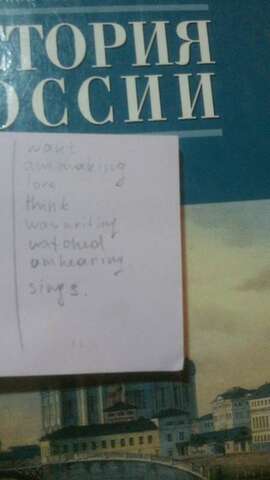 ТОРИЯ
ОССИИ
want
am making
love
think
was writing
watched
am hearing
sings.